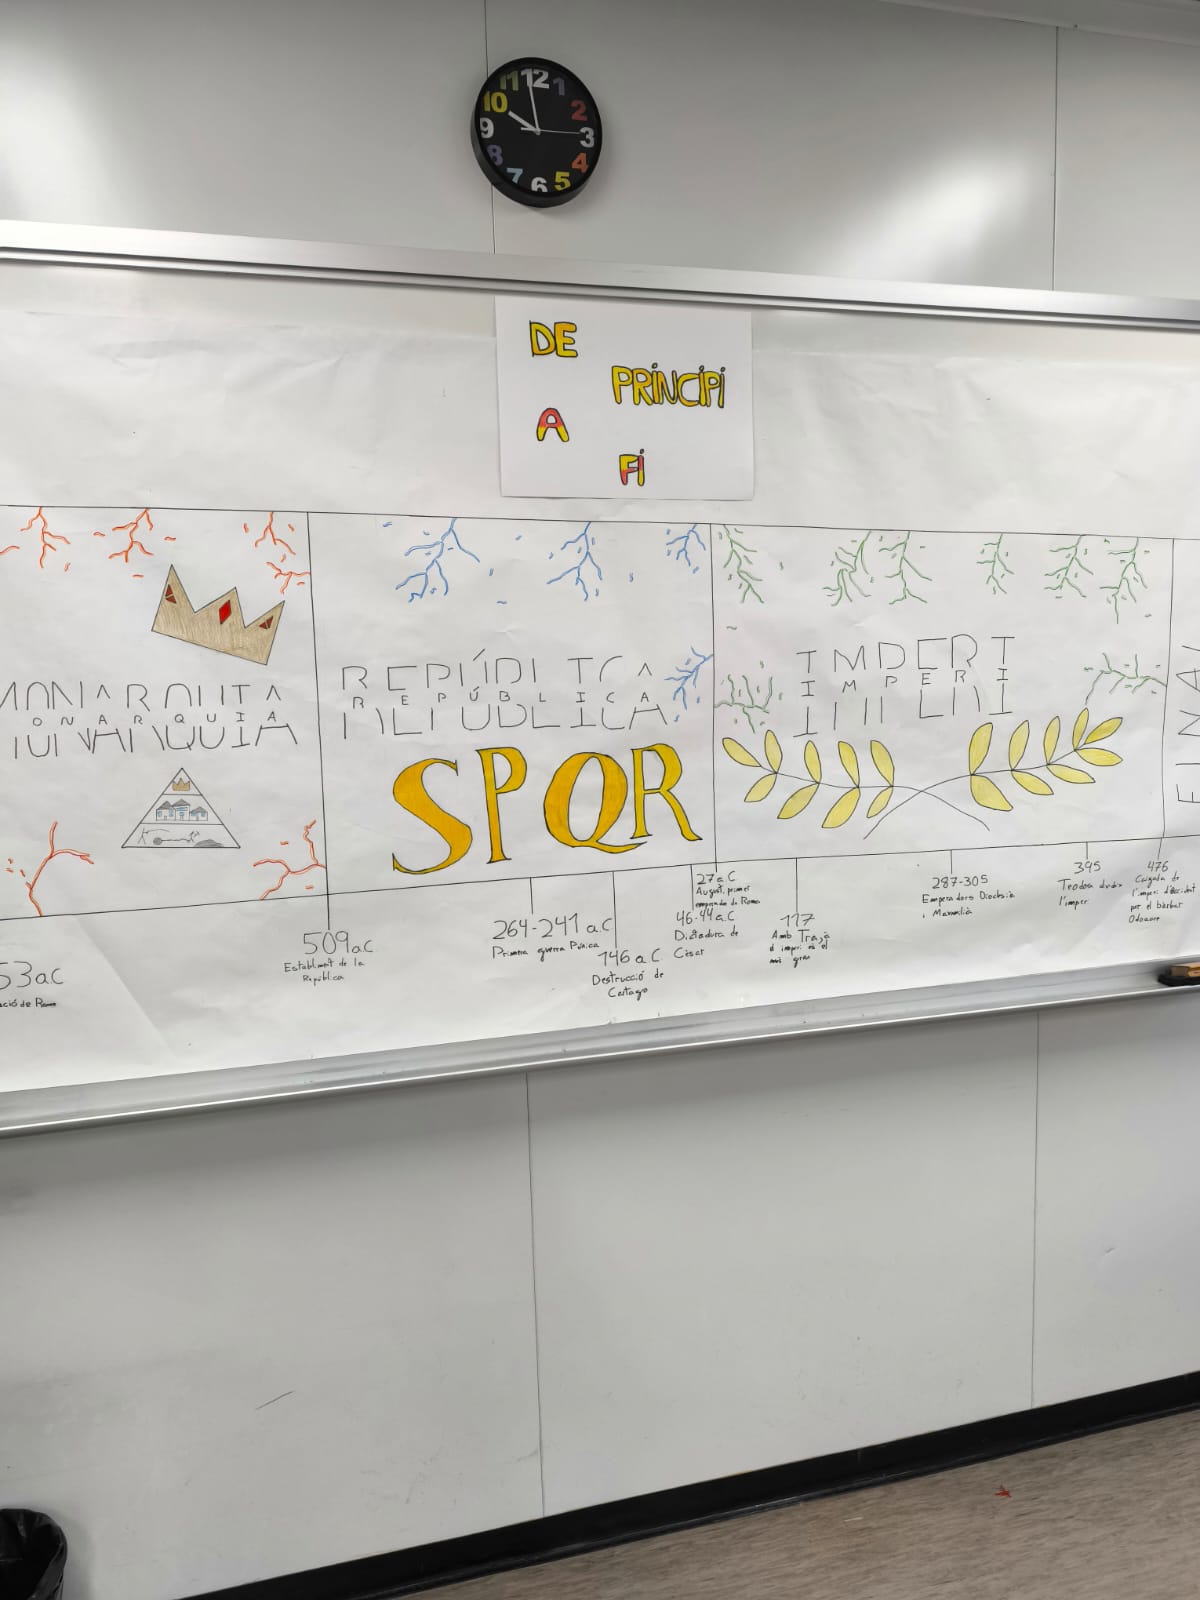 11 12 1
10 2
9 3
8 4
7 6 5
DE
PRINCIPI
A
FI
MONARQUIA
REPÚBLICA
SPQR
IMPERI
53 a.C
ació de Roma
509 a.C
Establiment de la
República
264-241 a.C
Primera guerra Púnica
146 a.C
Destrucció de
Cartago
46-44 a.C
Dictadura de
Cèsar
27 a.C
August, primer
emperador de Roma
117
Amb Trajà
l'imperi és el
més gran
287-305
Emperadors Dioclecià
i Maximià
395
Teodosi divideix
l'imperi
476
Caiguda de
l'imperi d'occident
per el bàrbar
Odoacre